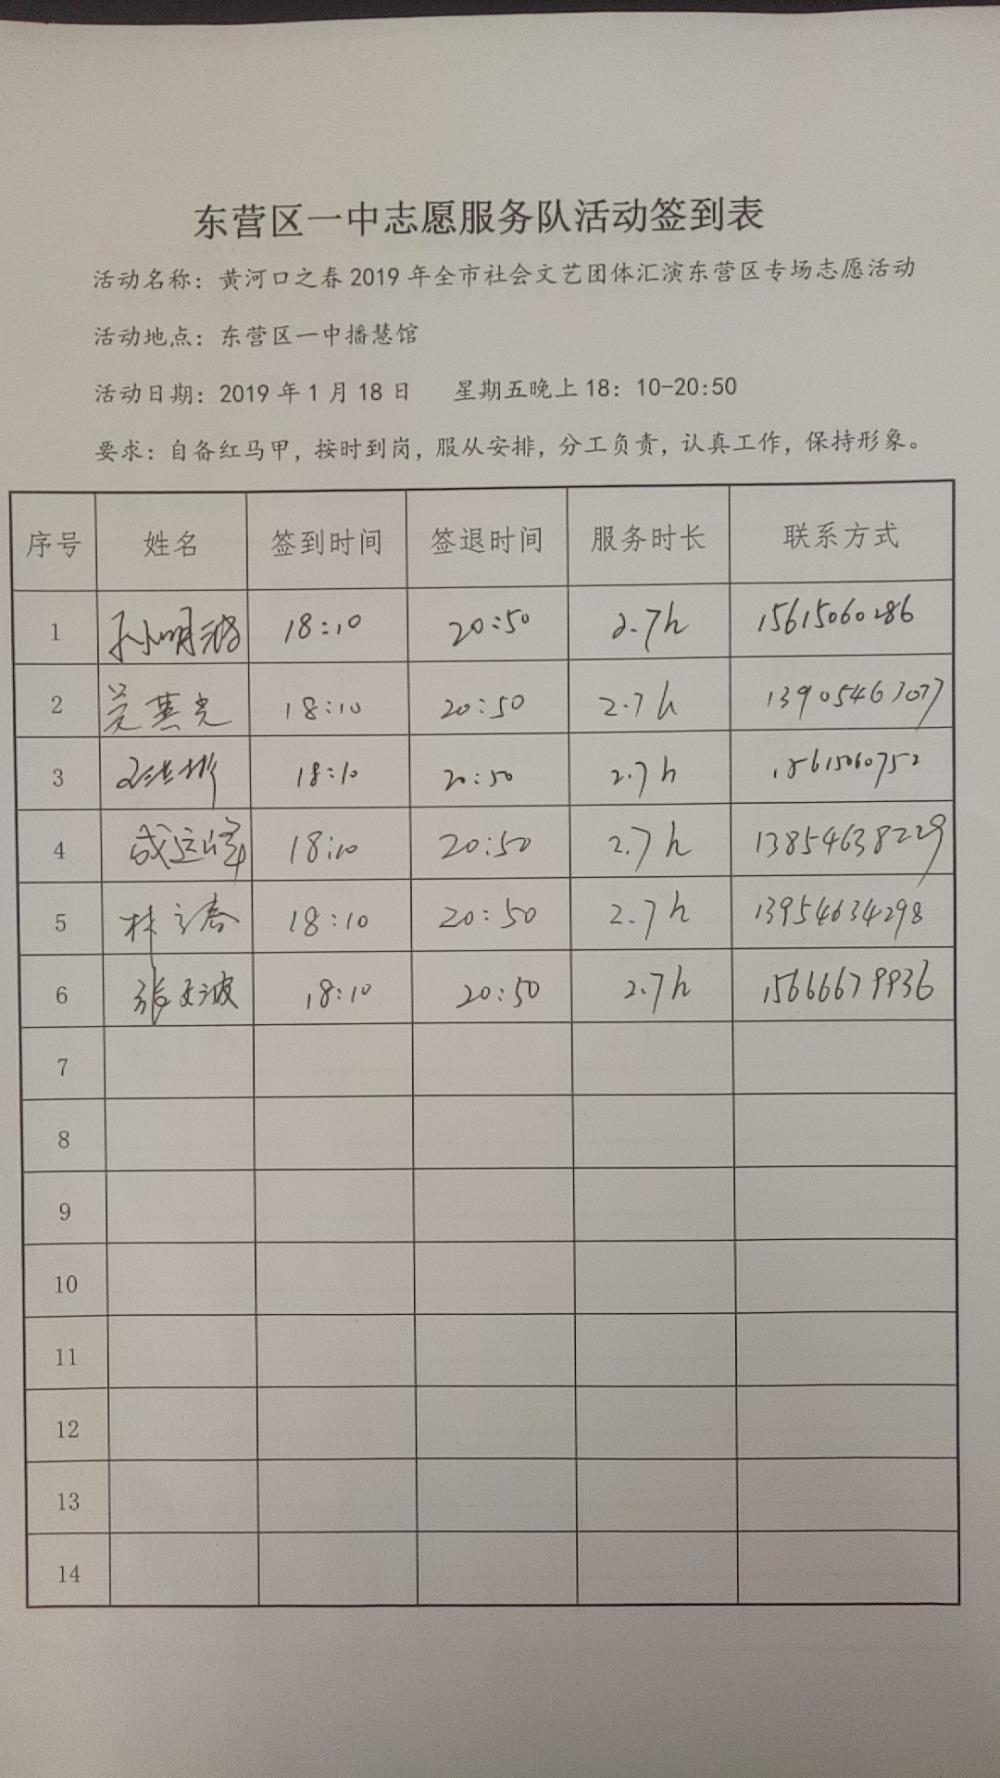 东营区一中志愿服务队活动签到表
活动名称：黄河口之春2019年全市社会文艺团体汇演东营区专场志愿活动
活动地点：东营区一中播慧馆
活动日期：2019年1月18日 星期五晚上18：10-20:50
要求：自备红马甲，按时到岗，服从安排，分工负责，认真工作，保持形象。
序号 姓名 签到时间 签退时间 服务时长 联系方式
1 孙明波 18:10 20:50 2.7h 15615060286
2 18:10 20:50 2.7h
3 18:10 20:50 2.7h
4 18:10 20:50 2.7h 13854638229
5 18:10 20:50 2.7h 13954634298
6 18:10 20:50 2.7h 15666679936
7
8
9
10
11
12
13
14